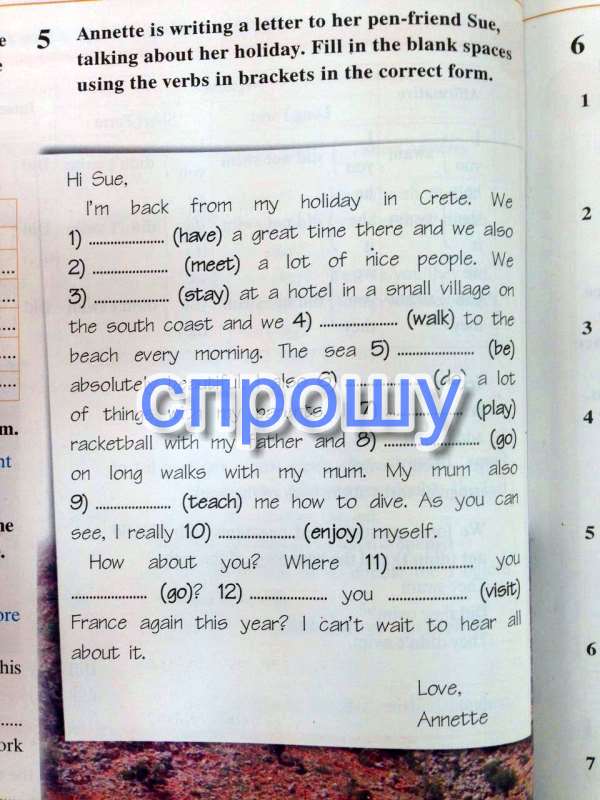 5 Annette is writing a letter to her pen-friend Sue,
talking about her holiday. Fill in the blank spaces
using the verbs in brackets in the correct form.
Hi Sue,
I'm back from my holiday in Crete. We
1) ...................... (have) a great time there and we also
2) ...................... (meet) a lot of nice people. We
3) ...................... (stay) at a hotel in a small village on
the south coast and we 4) ...................... (walk) to the
beach every morning. The sea 5) ...................... (be)
a lot
of my 7) (play)
racketball with my father and 8) ...................... (go)
on long walks with my mum. My mum also
9) ...................... (teach) me how to dive. As you can
see, I really 10) ...................... (enjoy) myself.
How about you? Where 11) ...................... you
...................... (go)? 12) ...................... you ...................... (visit)
France again this year? I can't wait to hear all
about it.
Love,
Annette
спрошу
6
1
2
3
4
5
6
7